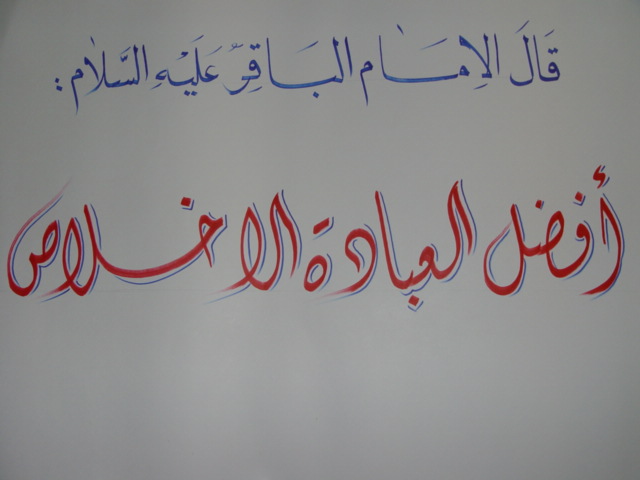 قَالَ الاِمَام البَاقِرُ عَلَيْهِ السَّلام :
أفضل العبادة الاخلاص